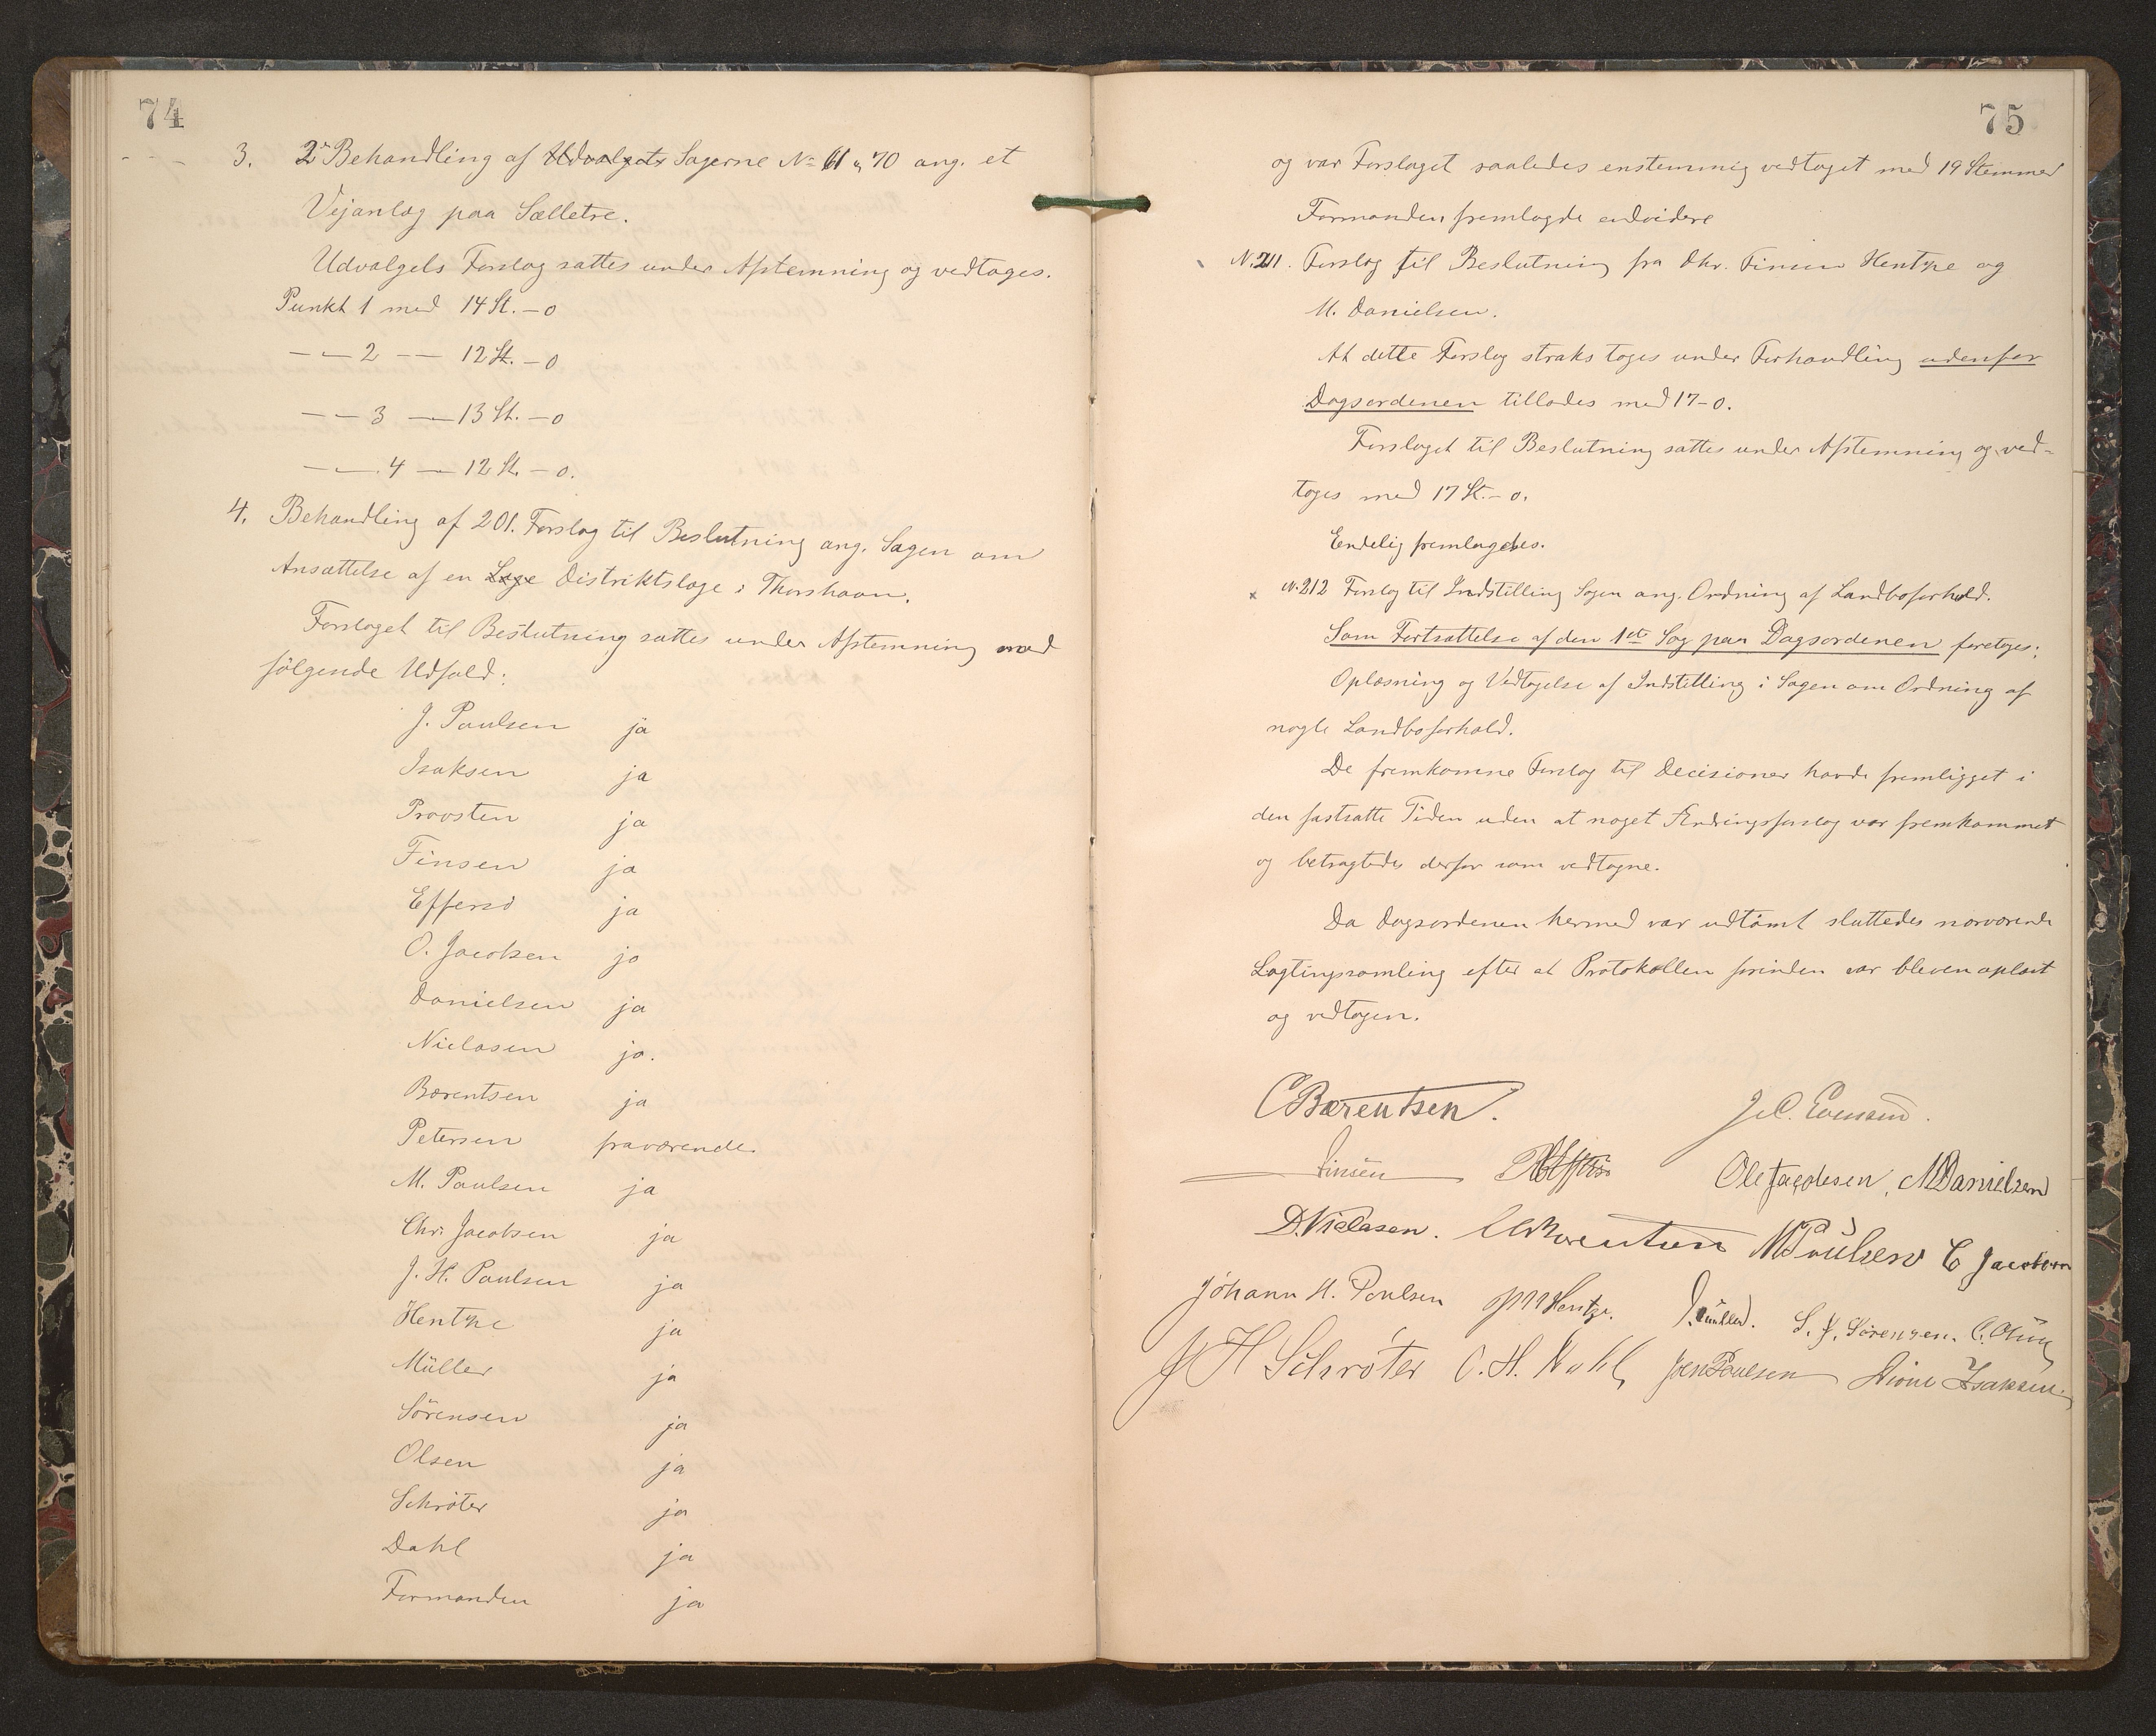 74
3. 2' Behandling af Udvalgets Sagerne No 61 & 70 ang. et
Vejanlæg paa Sælletræ.
Udvalgets Forslag sattes under Afstemning og vedtages.
Punkt 1 med 14 St. – 0
— — 2 — — 12 St. – 0
— — 3 — 13 St. – 0
— — 4 — 12 St. – 0.
4. Behandling af 201. Forslag til Beslutning ang. Sagen om
Ansættelse af en Læge Distriktslæge i Thorshavn.
Forslaget til Beslutning sattes under Afstemning med
følgende Udfald:
J. Paulsen ja
Isaksen ja
Provsten ja
Finsen ja
Effersö ja
O. Jacobsen ja
Danielsen ja
Niclasen ja.
Bærentsen ja
Petersen fraværende.
M. Paulsen ja
Chr. Jacobsen ja
J. H. Poulsen ja
Hentze ja
Müller ja
Sörensen ja
Olsen ja
Schröter ja
Dahl ja
Formanden ja
75
og var Forslaget saaledes enstemmig vedtaget med 19 Stemmer
Formanden fremlagde endvidere
N. 211. Forslag til Beslutning fra dhr. Finsen Hentze og
M. Danielsen.
At dette Forslag straks toges under Forhandling udenfor
Dagsordenen tillodes med 17–0.
Forslaget til Beslutning sattes under Afstemning og ved-
toges med 17 St. – 0.
Endelig fremlagdes.
N. 212 Forslag til Indstilling Sagen ang. Ordning af Landboforhold.
Som Fortsættelse af den 1ste Sag paa Dagsordenen foretoges:
Oplæsning og Vedtagelse af Indstilling i Sagen om Ordning af
nogle Landboforhold.
De fremkomne Forslag til Decisioner havde fremligget i
den fastsatte Tiden uden at noget Ændringsforslag var fremkommet
og betragtedes derfor som vedtagne.
Da Dagsordenen hermed var udtömt sluttedes nærværende
Lagtingssamling efter at Protokollen forinden var bleven oplæst
og vedtagen.
C Bærentsen. J. C. Evensen.
Finsen Ole Jacobsen, M Danielsen
D. Niclasen. M Poulsen C Jacobsen
Johann H. Poulsen Hentze. Müller. S. J. Sörensen. C. Olsen
J H Schröter O. H. Dahl, Joen Poulsen Isaksen.